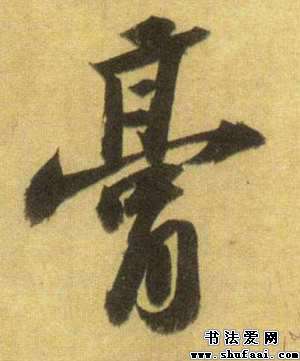 膏
书法爱网
www.shufaai.com